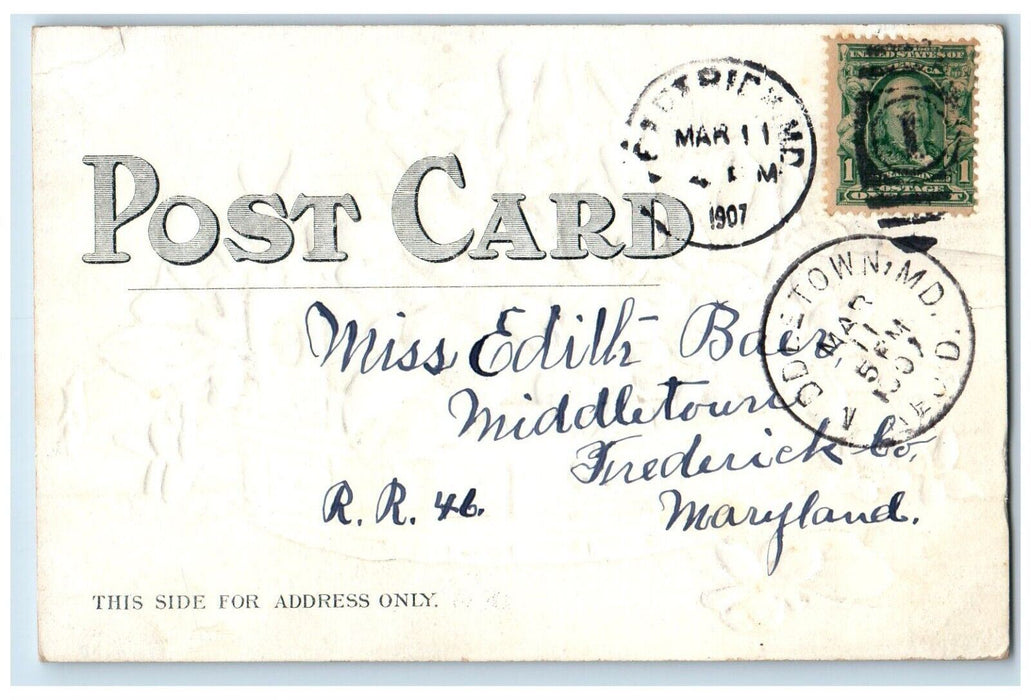 POST CARD
MAR 11
1907
UNITED STATES OF
AMERICA
1 1
POSTAGE
MIDDLETOWN, MD.
MAR
11
5 PM
1907
REC'D.
Miss Edith Baer
Middletown
Frederick Co.
R. R. 46. Maryland.
THIS SIDE FOR ADDRESS ONLY.